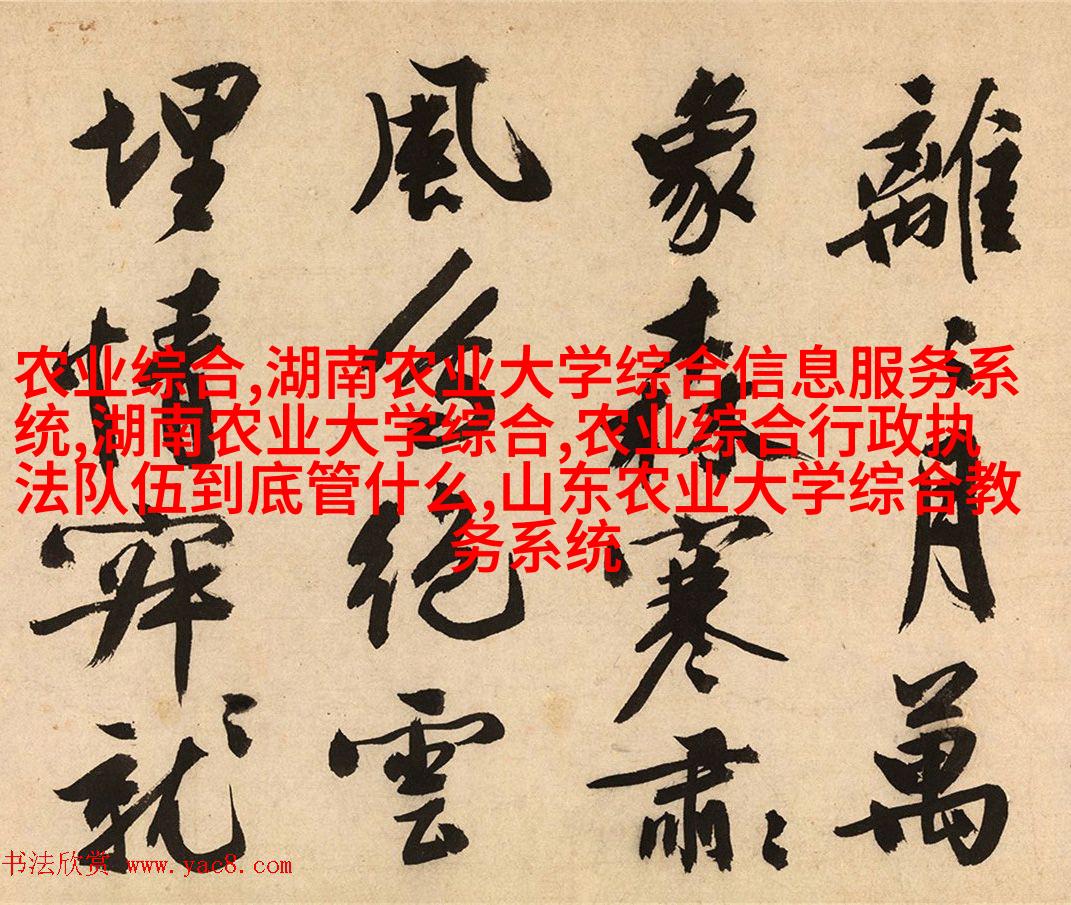 離月萬
象森寒肅
風色絕雲
埋情就
农业综合,湖南农业大学综合信息服务系
统,湖南农业大学综合,农业综合行政执
法队伍到底管什么,山东农业大学综合教
务系统
书法欣赏 www.yac8.com